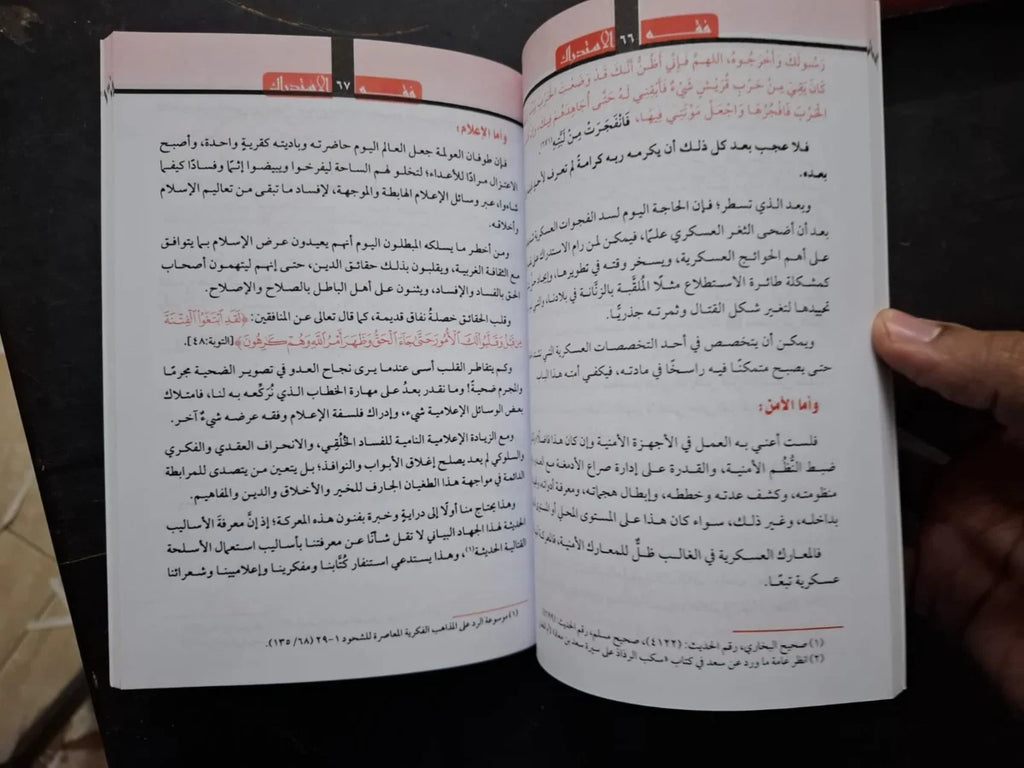 فقه ٦٦ الاستدراك
رَسُولَكَ وَأَخْرَجُوهُ، اللهم فَإِنِّي أَظُنُّ أَنَّكَ قَدْ وَضَعْتَ الحَرْبَ
كَانَ بَقِيَ مِنْ حَرْبِ قُرَيْشٍ شَيْءٌ فَأَبْقِنِي لَهُ حَتَّى أُجَاهِدَهُمْ فِيكَ، وَإِنْ
الحَرْبَ فَافْجُرْهَا وَاجْعَلْ مَوْتَتِي فِيهَا، فَانْفَجَرَتْ مِنْ لَبَّتِهِ(١)(٢).
فلا عجب بعد كل ذلك أن يكرمه ربه كرامةً لم تعرف لأحد
بعده.
وبعد الذي تسطر؛ فإن الحاجة اليوم لسد الفجوات العسكرية
بعد أن أضحى الثغر العسكري علمًا، فيمكن لمن رام الاستدراك
على أهم الحوائج العسكرية، ويسخر وقته في تطويرها، وإيجاد
كمشكلة طائرة الاستطلاع مثلًا المُلقَّبة بالزنَّانة في بلادنا، والتي
تحييدها لتغير شكل القتال وثمرته جذريًّا.
ويمكن أن يتخصص في أحد التخصصات العسكرية التي
حتى يصبح متمكنًا فيه راسخًا في مادته، فيكفي أمته هذا الباب
وأما الأمن:
فلست أعني به العمل في الأجهزة الأمنية وإن كان هذا فاضلًا،
ضبط النُّظُم الأمنية، والقدرة على إدارة صراع الأدمغة مع
منظومته، وكشف عدته وخططه، وإبطال هجماته، ومعرفة أدواته،
بداخله، وغير ذلك، سواء كان هذا على المستوى المحلي أو
فالمعارك العسكرية في الغالب ظلٌّ للمعارك الأمنية،
عسكرية تبعًا.
(١) صحيح البخاري، رقم الحديث: (٤١٢٢)، صحيح مسلم، رقم الحديث:
(٢) انظر عامة ما ورد عن سعد في كتاب «سكب الرذاذ على سيرة سعد بن معاذ»
فقه ٦٧ الاستدراك
وأما الإعلام:
فإن طوفان العولمة جعل العالم اليوم حاضرته وباديته كقريةٍ واحدة، وأصبح
الاعتزال مرادًا للأعداء؛ لتخلو لهم الساحة ليفرخوا ويبيضوا إثمًا وفسادًا كيفما
شاءوا، عبر وسائل الإعلام الهابطة والموجهة، لإفساد ما تبقى من تعاليم الإسلام
وأخلاقه.
ومن أخطر ما يسلكه المبطلون اليوم أنهم يعيدون عرض الإسلام بما يتوافق
مع الثقافة الغربية، ويقلبون بذلك حقائق الدين، حتى إنهم ليتهمون أصحاب
الحق بالفساد والإفساد، ويثنون على أهل الباطل بالصلاح والإصلاح.
وقلب الحقائق خصلةُ نفاق قديمة، كما قال تعالى عن المنافقين: ﴿لَقَدِ ٱبۡتَغَوُاْ ٱلۡفِتۡنَةَ
مِن قَبۡلُ وَقَلَّبُواْ لَكَ ٱلۡأُمُورَ حَتَّىٰ جَآءَ ٱلۡحَقُّ وَظَهَرَ أَمۡرُ ٱللَّهِ وَهُمۡ كَٰرِهُونَ﴾ [التوبة:٤٨].
وكم يتفاطر القلب أسى عندما يرى نجاح العدو في تصوير الضحية مجرمًا
والمجرم ضحيةً! وما نقدر بعدُ على مهارة الخطاب الذي نُرَكِّعه به لنا، فامتلاك
بعض الوسائل الإعلامية شيء، وإدراك فلسفة الإعلام وفقه عرضه شيءٌ آخر.
ومع الزيادة الإعلامية النامية للفساد الخُلُقي، والانحراف العقدي والفكري
والسلوكي لم يعد يصلح إغلاق الأبواب والنوافذ؛ بل يتعين من يتصدى للمرابطة
الدائمة في مواجهة هذا الطغيان الجارف للخير والأخلاق والدين والمفاهيم.
وهذا يحتاج منا أولًا إلى درايةٍ وخبرة بفنون هذه المعركة؛ إذ إنَّ معرفةَ الأساليب
الحديثة لهذا الجهاد البياني لا تقل شأنًا عن معرفتنا بأساليب استعمال الأسلحة
القتالية الحديثة(١)، وهذا يستدعي استنفار كُتَّابنا ومفكرينا وإعلاميينا وشعرائنا
(١) موسوعة الرد على المذاهب الفكرية المعاصرة للشحود ١-٢٩ (٦٨/ ١٣٥).